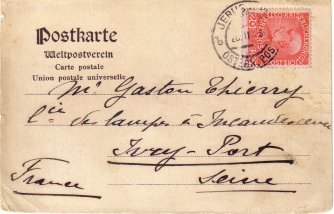 Postkarte
Weltpostverein
Carte postale
Union postale universelle
Mr Gaston Thierry
Cie de lampes à Incandescence
Ivry-Port
Seine
France